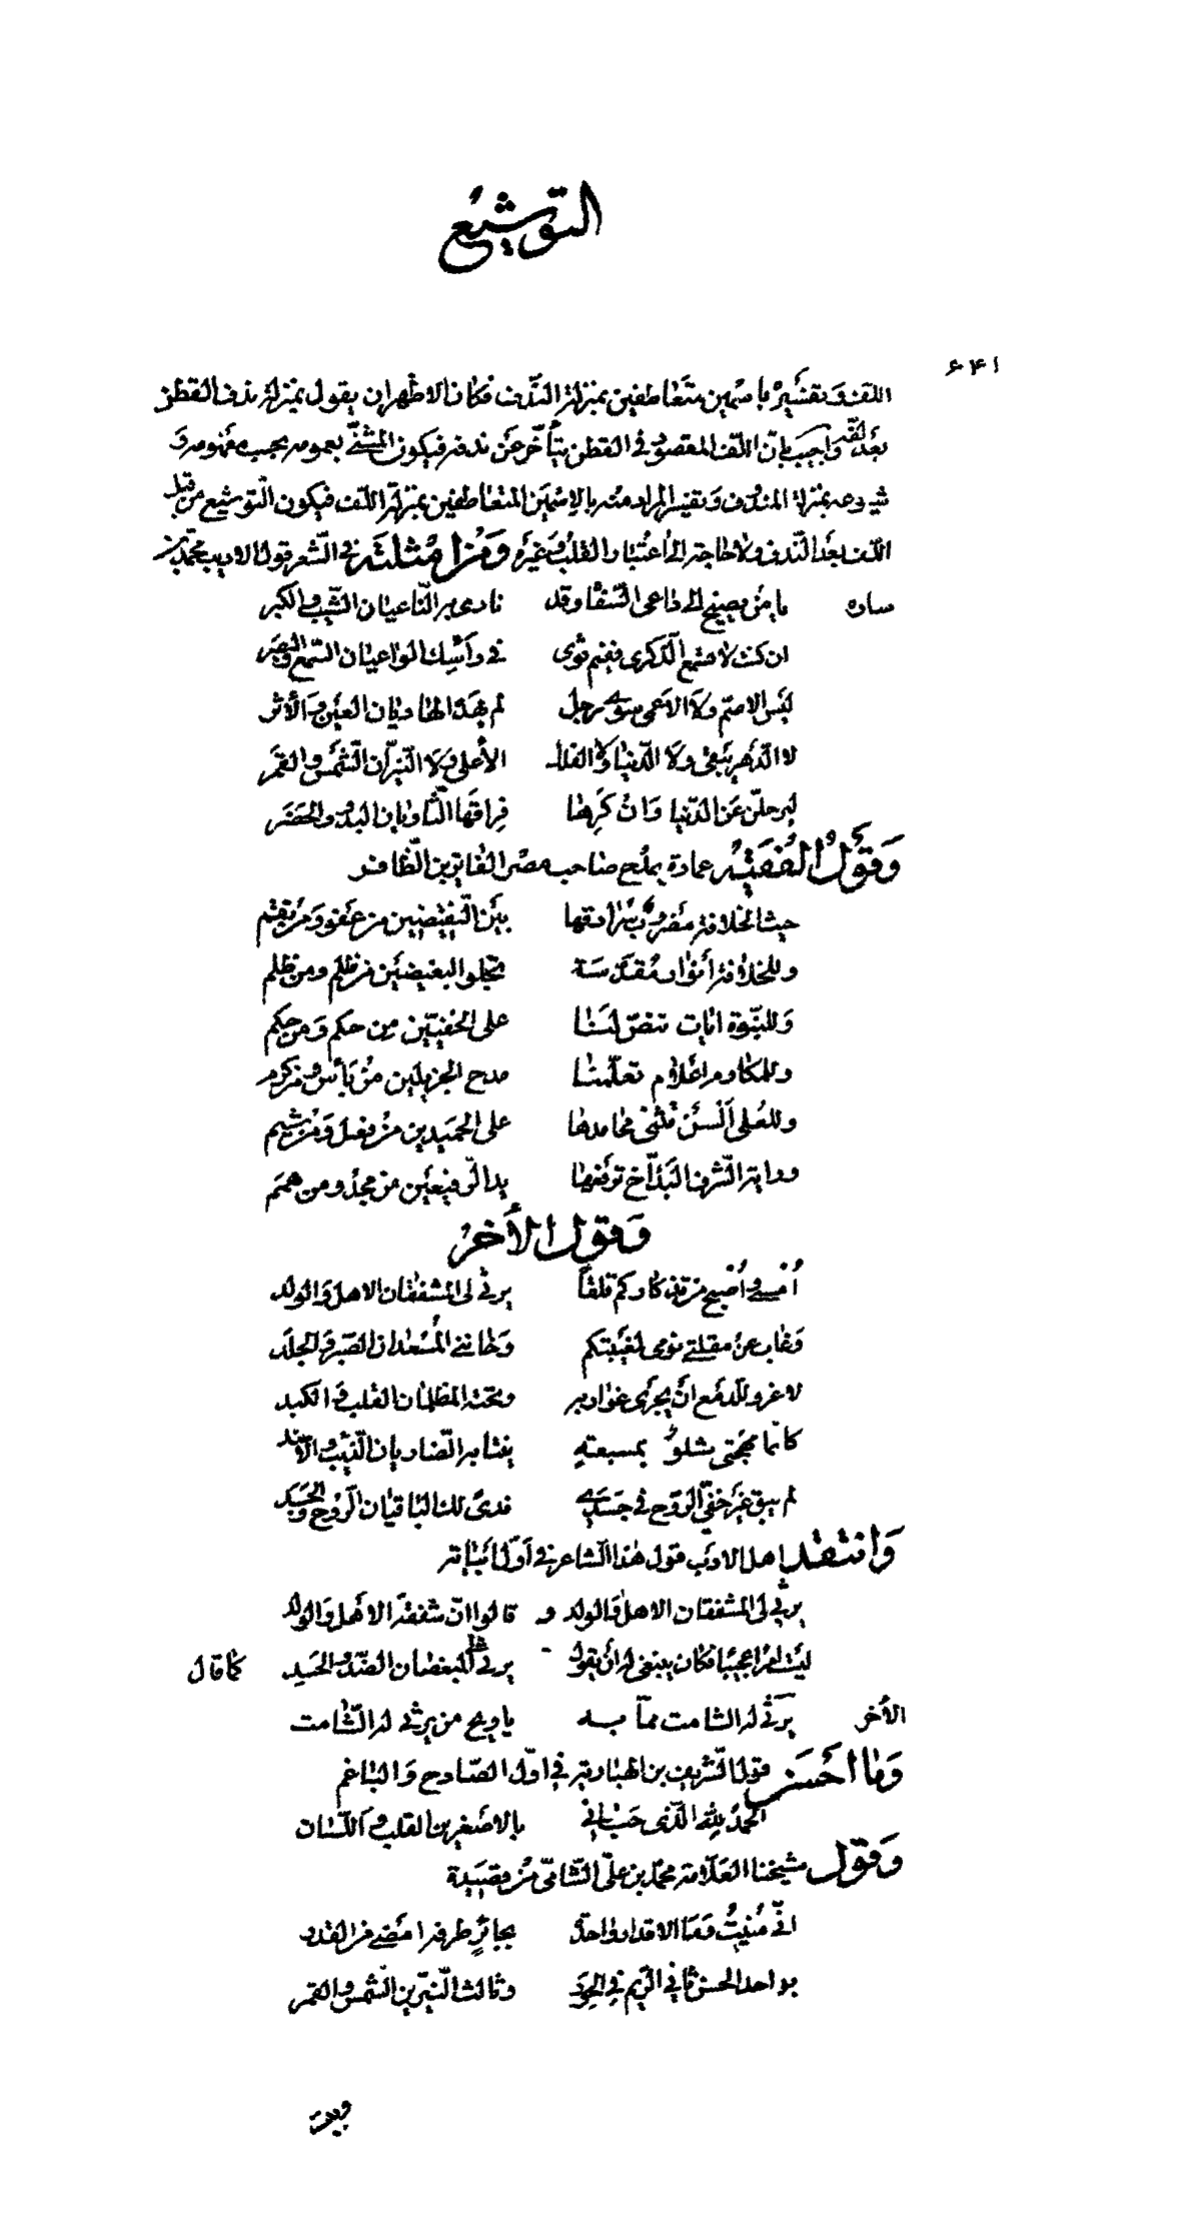 التوشيع
۶۴۱
اللف وتفسيره باسمين متعاطفين بمنزلة الندف فكان الاظهر ان يقول بمنزلة ندف القطن
بعد لفه واجيب بان اللف المقصود في القطن يتأخر عن ندفه فيكون المثنى بعمومه بحسب مفهومه و
شيوعه بمنزلة المندوف وتفسير المراد منه بالاسمين المتعاطفين بمنزلة اللف فيكون التوشيع من قبل
اللف بعد الندف ولا حاجة الى اعتبار القلب وغيره ومن امثلته في الشعر قول الاديب محمد بن
ساره يا من يصيخ الى داعي الشقا وقد نادى به الناعيان الشيب والكبر
ان كنت لا تسمع الذكرى ففيم ثوى في رأسك الواعيان السمع والبصر
ليس الاصم ولا الاعمى سوى رجل لم يهده الهاديان العين والأثر
لا الدهر يبقى ولا الدنيا ولا الفلك الأعلى ولا النيران الشمس والقمر
ليرحلن عن الدنيا وان كرها فراقها الثاويان البدو والحضر
وقول الفقيه عمادة يمدح صاحب مصر الفايز بن الظافر
حيث الخلافة مضروب سرادقها بين النقيضين من عفو ومن نقم
وللخلافة أنوار مقدسة تجلو البغيضين من ظلم ومن ظلم
وللنبوة ايات تنص لنا على الخفيين من حكم ومن حكم
وللمكارم اعلام تعلمنا مدح الجزيلين من بأس ومن كرم
وللعلى ألسن تثني محامدها على الحميدين من فعل ومن شيم
وراية الشرف البذاخ ترفعها يد الرفيعين من مجد ومن همم
وقول الأخر
أمسي وأصبح من تذكاركم قلقا يرثي لي المشفقان الاهل والولد
وغاب عن مقلتي نومي لغيبتكم وخانني المسعدان الصبر والجلد
لا غرو للدمع ان يجري غواربه وتحته المظلمان القلب والكبد
كانما مهجتي شلو بمسبعة ينتابه الضاريان الذئب والاسد
لم يبق غير خفي الروح في جسدي فدى لك الباقيان الروح والجسد
وانتقد اهل الادب قول هذا الشاعر في أول أبياته
يرثي لي المشفقان الاهل والولد و قالوا ان شفقة الاهل والولد
ليست امرا عجيبا فكان ينبغي له أن يقول يرثي لي المبغضان الضد والحسد كما قال
الأخر يرثي له الشامت مما به يا ويح من يرثي له الشامت
وما احسن قول الشريف بن الهبارية في اول الصادح والباغم
الحمد لله الذي حباني بالاصغرين القلب واللسان
وقول شيخنا العلامة محمد بن علي الشامي من قصيدة
اني منيت وما الاقدار واحدة بجائر طرفه امضى من القدر
بواحد الحسن ثاني الريم في الجيد وثالث النيرين الشمس والقمر